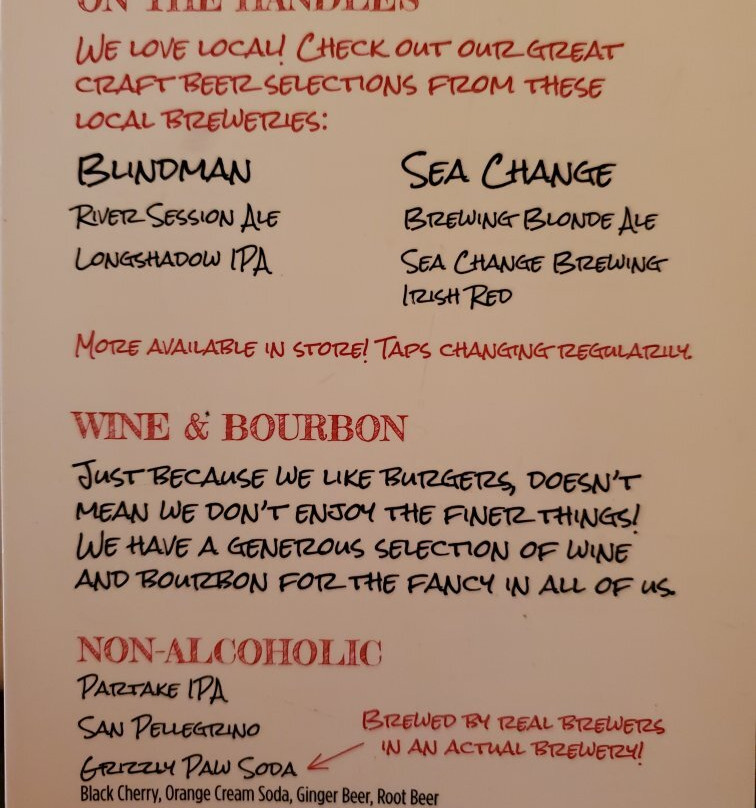 ON THE HANDLES
WE LOVE LOCAL! CHECK OUT OUR GREAT
CRAFT BEER SELECTIONS FROM THESE
LOCAL BREWERIES:
BLINDMAN
RIVER SESSION ALE
LONGSHADOW IPA
SEA CHANGE
BREWING BLONDE ALE
SEA CHANGE BREWING
IRISH RED
MORE AVAILABLE IN STORE! TAPS CHANGING REGULARILY.
WINE & BOURBON
JUST BECAUSE WE LIKE BURGERS, DOESN'T
MEAN WE DON'T ENJOY THE FINER THINGS!
WE HAVE A GENEROUS SELECTION OF WINE
AND BOURBON FOR THE FANCY IN ALL OF US.
NON-ALCOHOLIC
PARTAKE IPA
SAN PELLEGRINO
GRIZZLY PAW SODA
BREWED BY REAL BREWERS
IN AN ACTUAL BREWERY!
Black Cherry, Orange Cream Soda, Ginger Beer, Root Beer